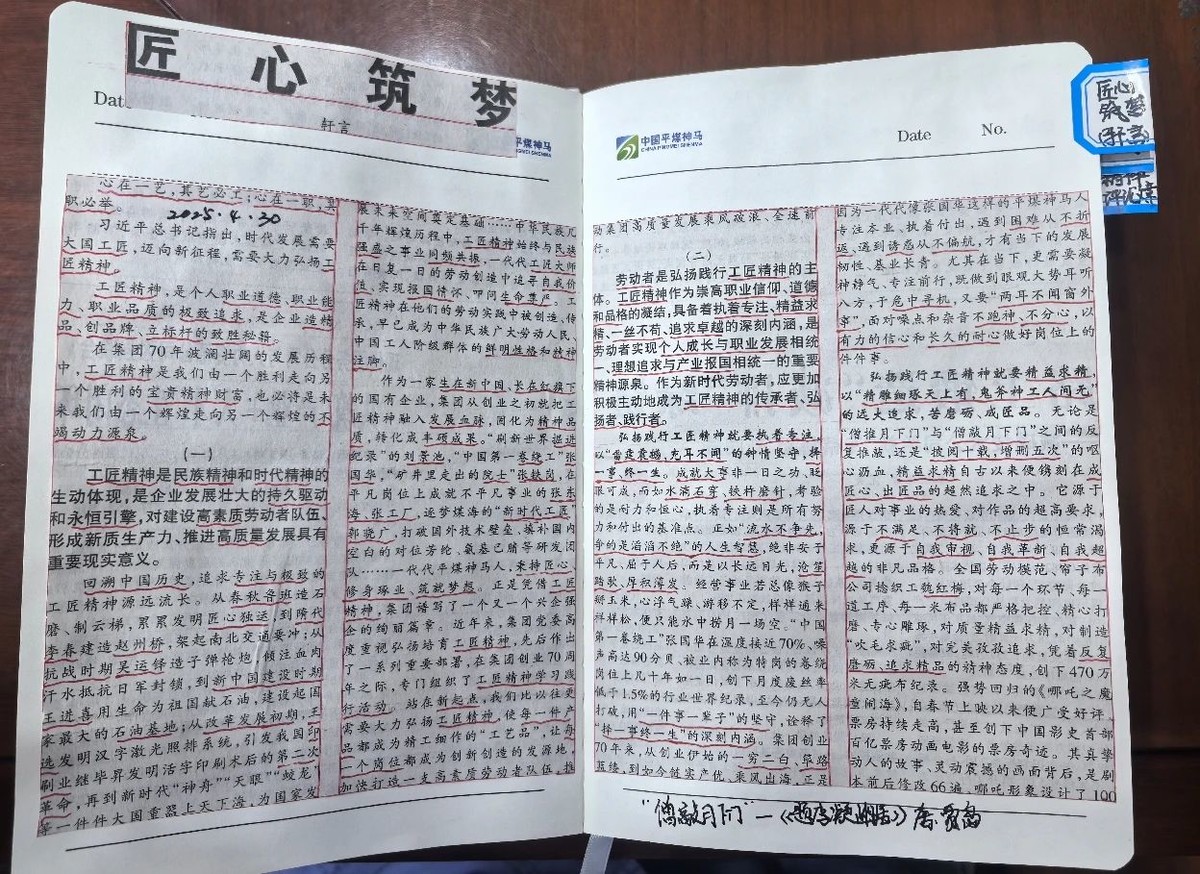 匠心筑梦
Date
轩言
平煤神马
心在一艺，其艺必工；心在一职，其
职必举。
2025.4.30
习近平总书记指出，时代发展需要
大国工匠，迈向新征程，需要大力弘扬工
匠精神。
工匠精神，是个人职业道德、职业能
力、职业品质的极致追求，是企业造精
品、创品牌、立标杆的致胜秘籍。
在集团70年波澜壮阔的发展历程
中，工匠精神是我们由一个胜利走向另
一个胜利的宝贵精神财富，也必将是未
来我们由一个辉煌走向另一个辉煌的不
竭动力源泉。
（一）
工匠精神是民族精神和时代精神的
生动体现，是企业发展壮大的持久驱动
和永恒引擎，对建设高素质劳动者队伍、
形成新质生产力、推进高质量发展具有
重要现实意义。
回溯中国历史，追求专注与极致的
工匠精神源远流长。从春秋鲁班造石
磨、制云梯，累累发明匠心独运，到隋代
李春建造赵州桥，架起南北交通要冲；从
抗战时期吴运铎造子弹枪炮，倾注血肉
汗水抵抗日军封锁，到新中国建设时期
王进喜用生命为祖国献石油，建设起国
家最大的石油基地；从改革发展初期，王
选发明汉字激光照排系统，引发我国印
刷业继毕昇发明活字印刷术后的第二次
革命，再到新时代“神舟”“天眼”“蛟龙”
等一件件大国重器上天下海，为国家发
展未来空间奠定基础……中华民族几
千年辉煌历程中，工匠精神始终与民族
强盛之事业同频共振，一代代工匠大师
在日复一日的劳动创造中追寻自我价
值、实现报国情怀、叩问生命尊严。工
匠精神在他们的劳动实践中被创造、传
承，早已成为中华民族广大劳动人民、
中国工人阶级群体的鲜明性格和精神
注脚。
作为一家生在新中国、长在红旗下
的国有企业，集团从创业之初就把工
匠精神融入发展血脉，固化为精神品
质，转化成丰硕成果。“刷新世界掘进
纪录”的刘景池，“中国第一卷绕工”张
国华，“矿井里走出的院士”张铁岗，在
平凡岗位上成就不平凡事业的张东
海、张工厂，逐梦煤海的“新时代工匠”
郭晓广，打破国外技术壁垒、填补国内
空白的对位芳纶、氨基己腈等研发团
队……一代代平煤神马人，秉持匠心、
修身琢业、筑就梦想。正是凭借工匠
精神，集团谱写了一个又一个兴企强
企的绚丽篇章。近年来，集团党委高
度重视弘扬培育工匠精神，先后作出
了一系列重要部署，在集团创业70周
年之际，专门组织了工匠精神学习践
行活动。站在新起点，我们比以往更
需要大力弘扬工匠精神，使每一件产
品都成为精工细作的“工艺品”，让每
一个岗位都成为创新创造的发源地，
加快打造一支高素质劳动者队伍，推
中国平煤神马
CHINA PINGMEI SHENMA
Date
No.
匠心
筑梦
(轩言)
动集团高质量发展乘风破浪、全速前
行。
（二）
劳动者是弘扬践行工匠精神的主
体。工匠精神作为崇高职业信仰、道德
和品格的凝结，具备着执着专注、精益求
精、一丝不苟、追求卓越的深刻内涵，是
劳动者实现个人成长与职业发展相统
一、理想追求与产业报国相统一的重要
精神源泉。作为新时代劳动者，应更加
积极主动地成为工匠精神的传承者、弘
扬者、践行者。
弘扬践行工匠精神就要执着专注，
以“雷霆震撼，充耳不闻”的钟情坚守，择
一事终一生。成就大事非一日之功、眨
眼可成，而如水滴石穿、铁杵磨针，考验
的是耐力和恒心，执着专注则是所有努
力和付出的基准点。正如“流水不争先，
争的是滔滔不绝”的人生智慧，绝非安于
平凡、屈于人后，而是以长远目光，沧笙
踏歌、厚积薄发。经营事业若总像猴子
掰玉米，心浮气躁、游移不定，样样通来
样样松，便只能水中捞月一场空。“中国
第一卷绕工”张国华在湿度接近70%、噪
声高达90分贝、被业内称为特岗的卷绕
岗位上几十年如一日，创下月度废丝率
低于1.5%的行业世界纪录，至今仍无人
打破，用“一件事一辈子”的坚守，诠释了
“择一事终一生”的深刻内涵。集团创业
70年来，从创业伊始的一穷二白、筚路
蓝缕，到如今链实产优、乘风出海，正是
因为一代代像张国华这样的平煤神马人
专注本业、执着付出，遇到困难从不折
返、遇到诱惑从不偏航，才有当下的发展
韧性、基业长青。尤其在当下，更需要凝
神静气、专注前行，既做到眼观大势耳听
八方，于危中寻机，又要“两耳不闻窗外
事”，面对噪点和杂音不跑神、不分心，以
有力的信心和长久的耐心做好岗位上的
件件事。
弘扬践行工匠精神就要精益求精，
以“精雕细琢天上有，鬼斧神工人间无”
的远大追求，苦磨砺、成匠品。无论是
“僧推月下门”与“僧敲月下门”之间的反
复推敲，还是“披阅十载，增删五次”的呕
心沥血，精益求精自古以来便镌刻在成
匠心、出匠品的超然追求之中。它源于
匠人对事业的热爱、对作品的超高要求，
源于不满足、不将就、不止步的恒常渴
求，更源于自我审视、自我革新、自我超
越的非凡品格。全国劳动模范、帘子布
公司捻织工魏红梅，对每一个环节、每一
道工序、每一米布品都严格把控、精心打
磨、专心雕琢，对质量精益求精，对制造
“吹毛求疵”，对完美孜孜追求，凭着反复
磨砺、追求精品的精神态度，创下470万
米无疵布纪录。强势回归的《哪吒之魔
童闹海》，自春节上映以来便广受好评，
票房持续走高，甚至创下中国影史首部
百亿票房动画电影的票房奇迹。其真挚
动人的故事、灵动震撼的画面背后，是剧
本前后修改66遍、哪吒形象设计了100
“僧敲月下门”—《题李凝幽居》唐·贾岛